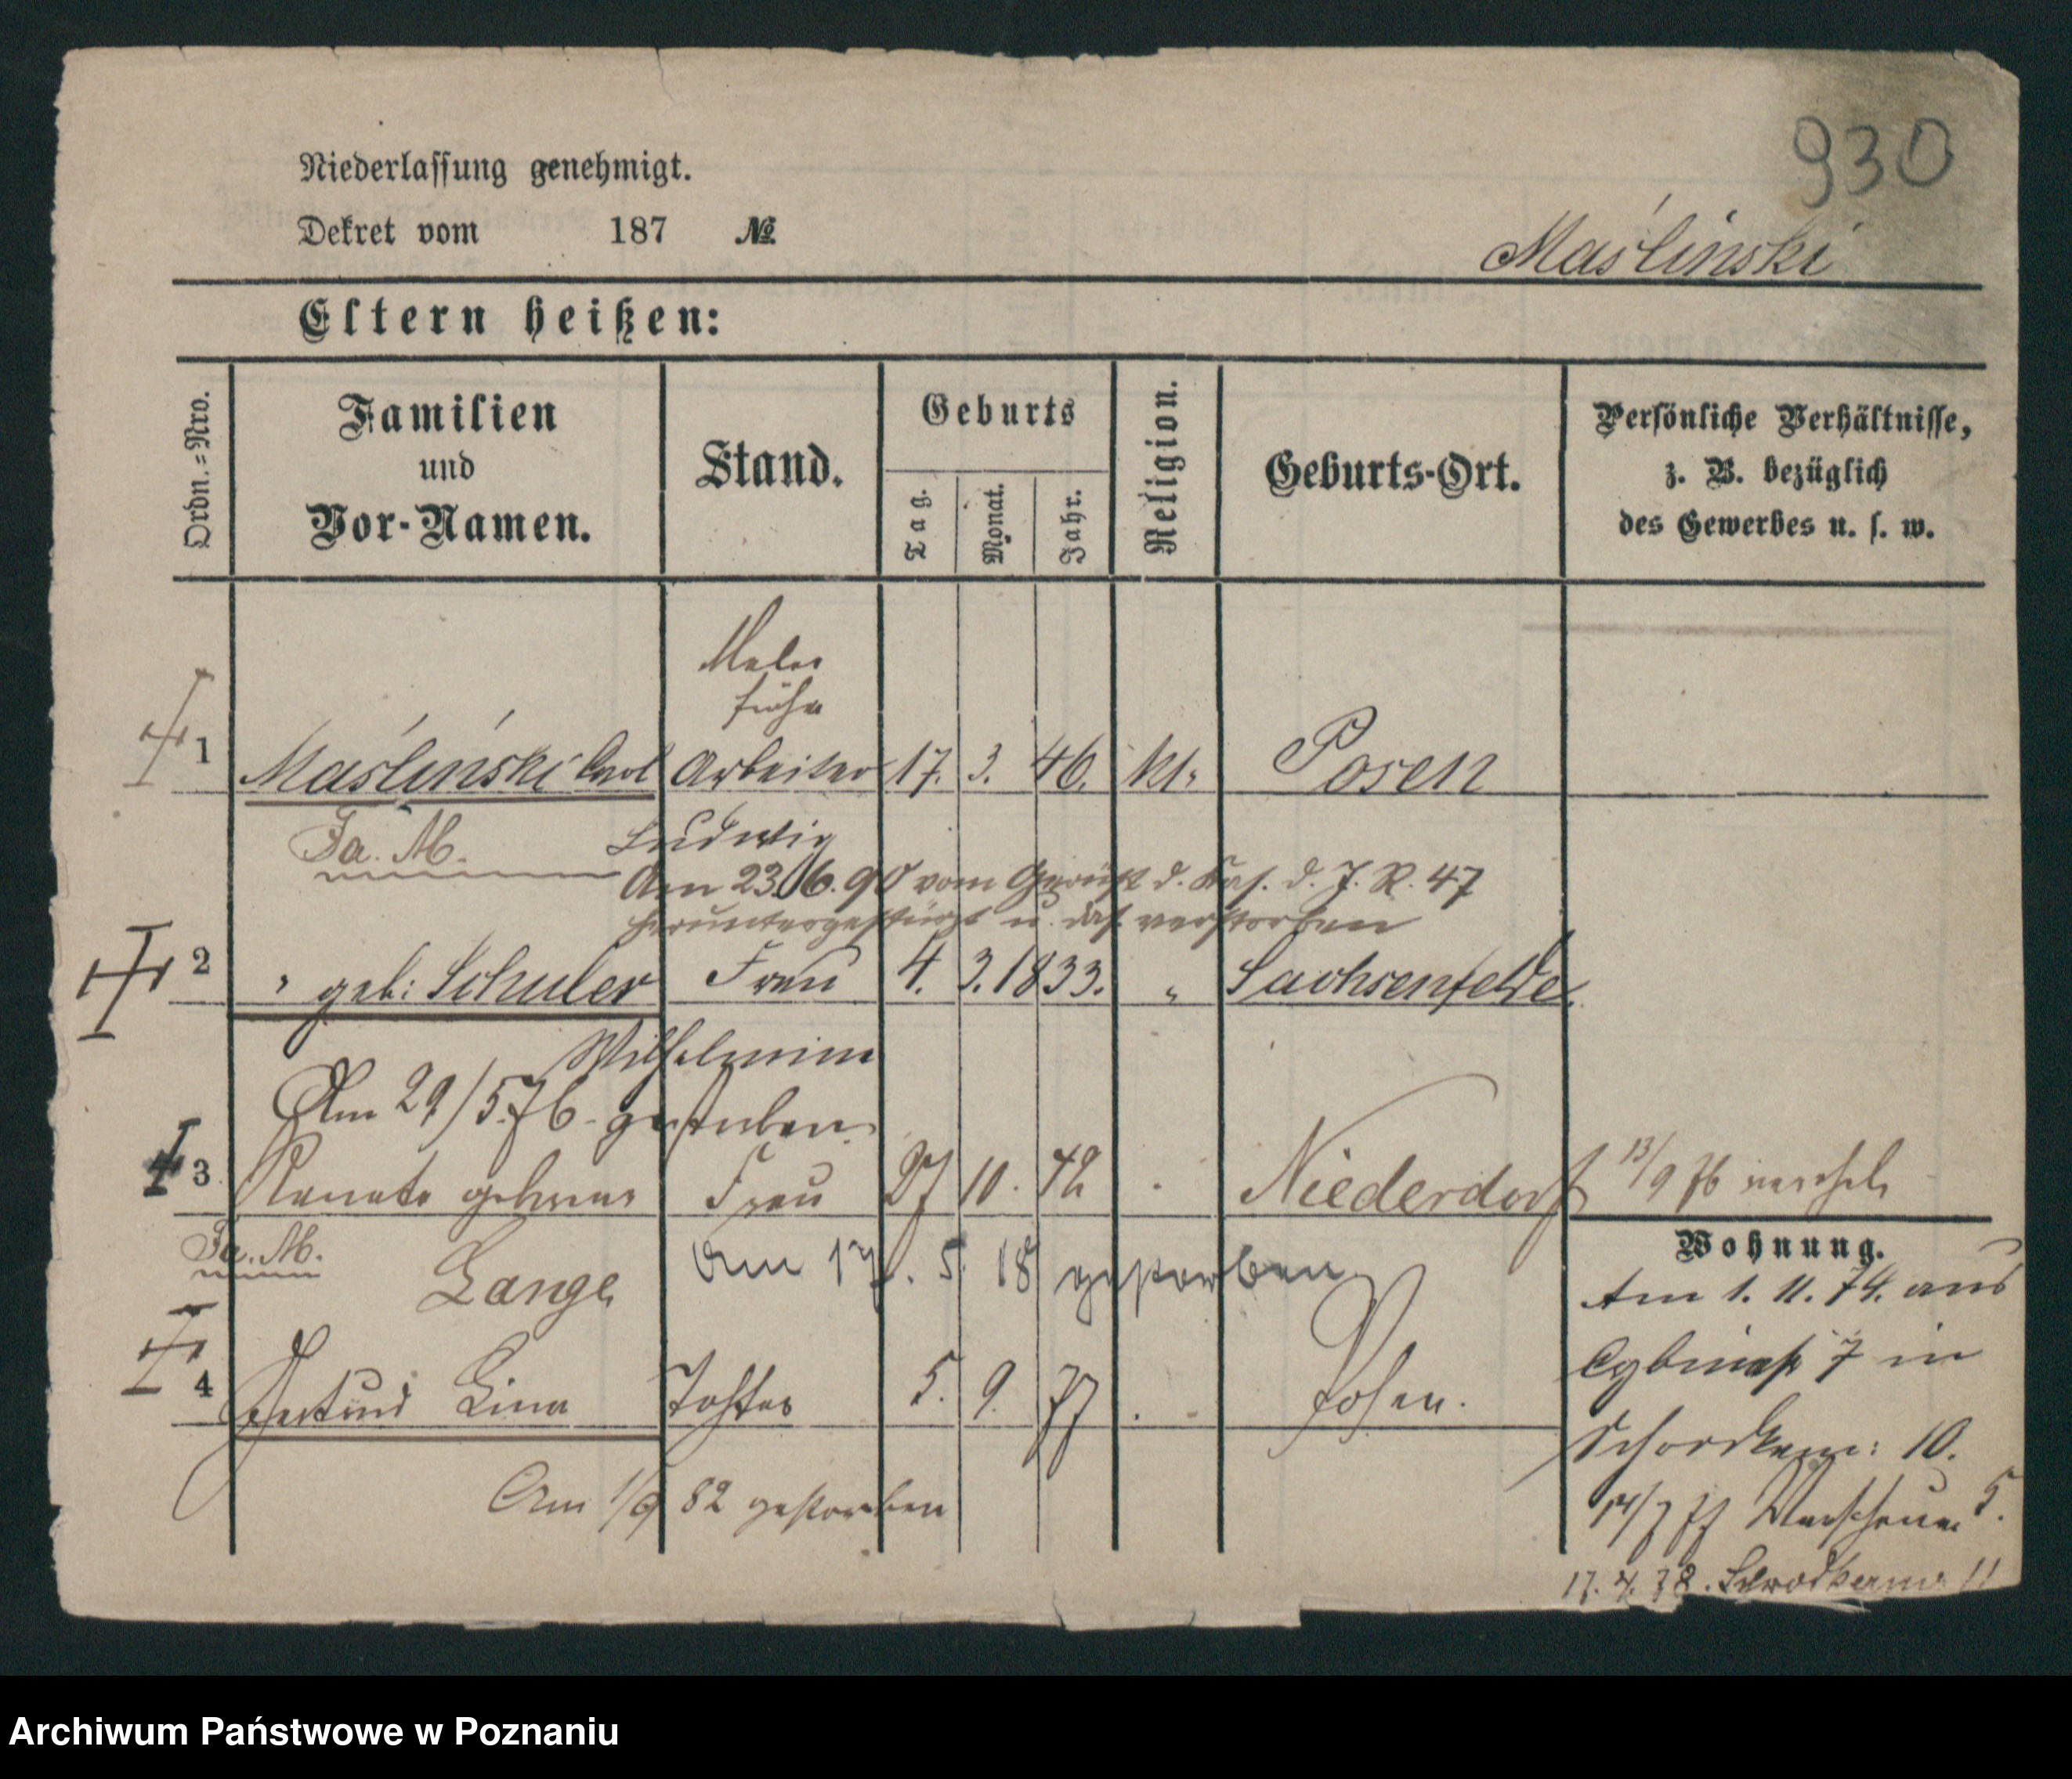 930
Niederlassung genehmigt.
Dekret vom 187 №
Maśliński
Eltern heißen:
Ordn.=Nro.
Familien
und
Vor-Namen.
Stand.
Geburts
Tag.
Monat.
Jahr.
Religion.
Geburts-Ort.
Persönliche Verhältnisse,
z. B. bezüglich
des Gewerbes u. s. w.
Maler
früher
1 Maśliński Carl Arbeiter 17. 3. 46. kt. Posen
Fa. M. Ludwig
Am 23.6.90 vom Gerüst d. Kas. d. J. R. 47
heruntergestürzt u. das. verstorben
2 " geb: Schuler Frau 4. 3. 1833. " Sachsenfelde
Wilhelmine
Am 29/5.76. gestorben.
3 Renate geborene Frau 27 10. 42 Niederdorf 13/9 76 verehel.
Fa. M. Lange
Am 17. 5. 18 gestorben
4 Gertrud Lina Tochter 5. 9. 77 Posen.
Am 1/9 82 gestorben
Wohnung.
Am 1. 11. 74. aus
Cybinastr 7 in
Schrodkerm: 10.
14/7 77 5.
17. 4. 78. Schrodkerm. 11
Archiwum Państwowe w Poznaniu